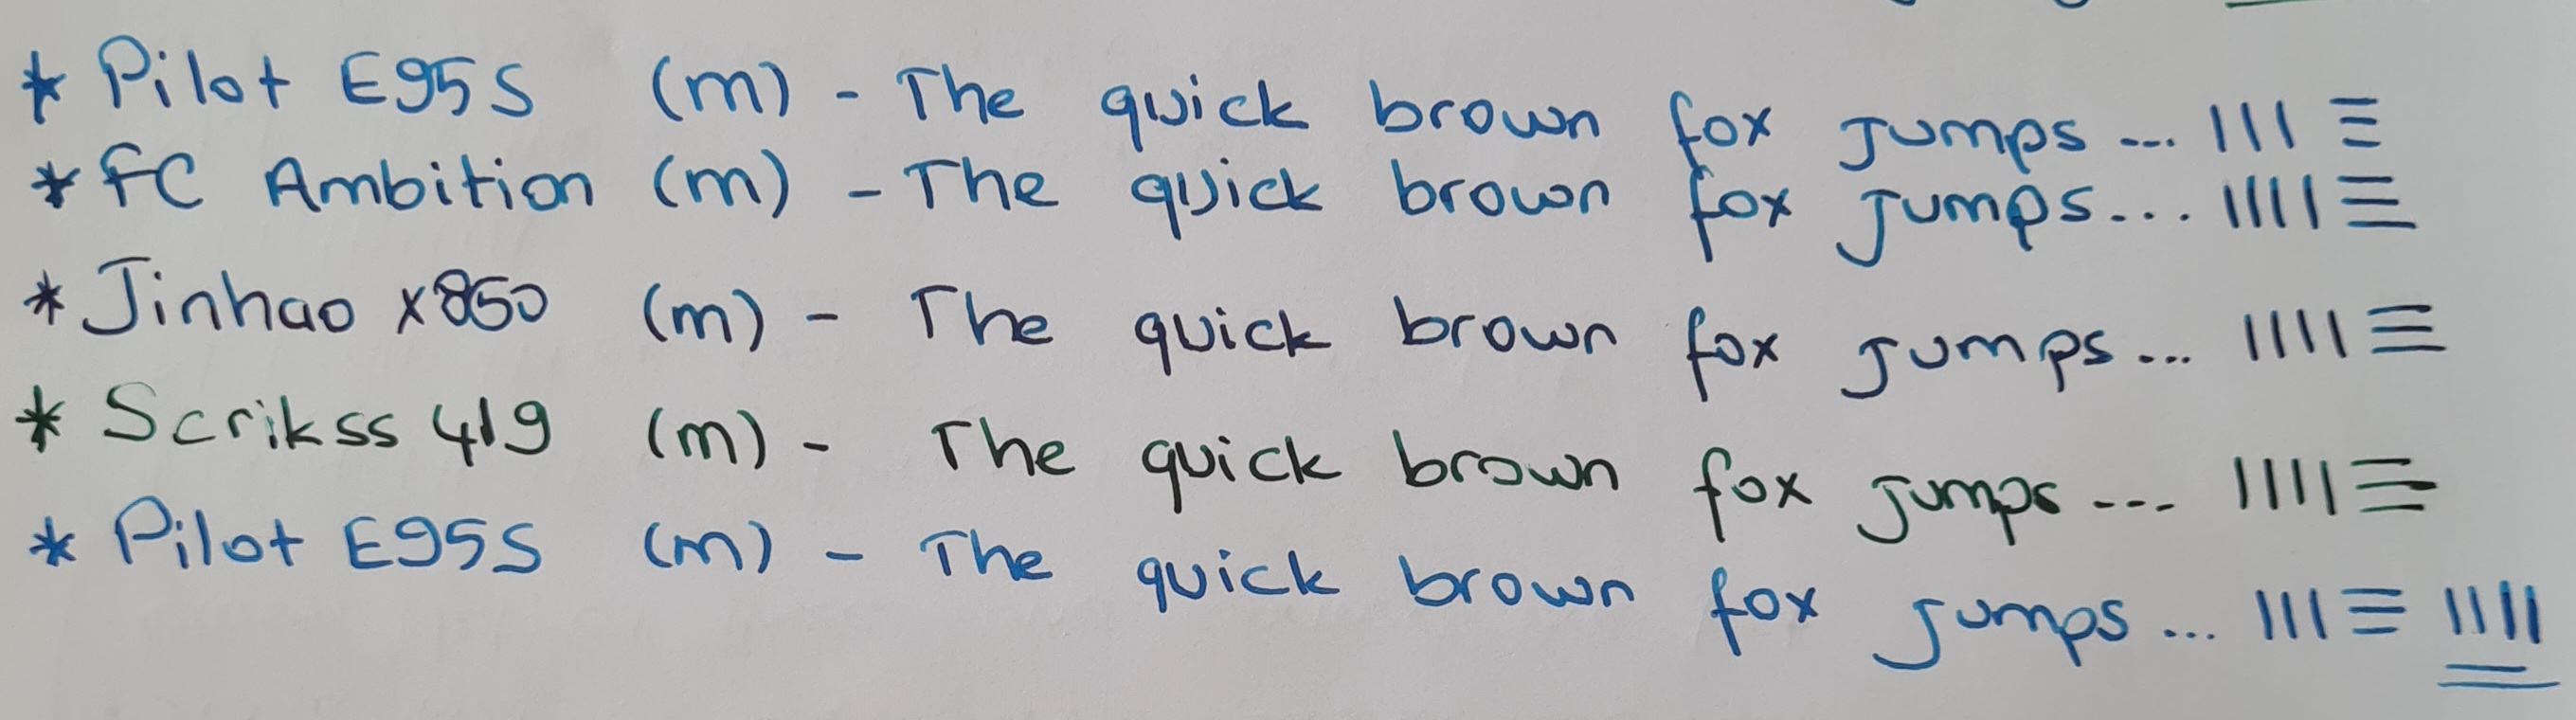 * Pilot E95S (m) - The quick brown fox jumps... ||| ≡
* FC Ambition (m) - The quick brown fox jumps... |||| ≡
* Jinhao x850 (m) - The quick brown fox jumps... |||| ≡
* Scrikss 419 (m) - The quick brown fox jumps... |||| ≡
* Pilot E95S (m) - The quick brown fox jumps... ||| ≡ ||||